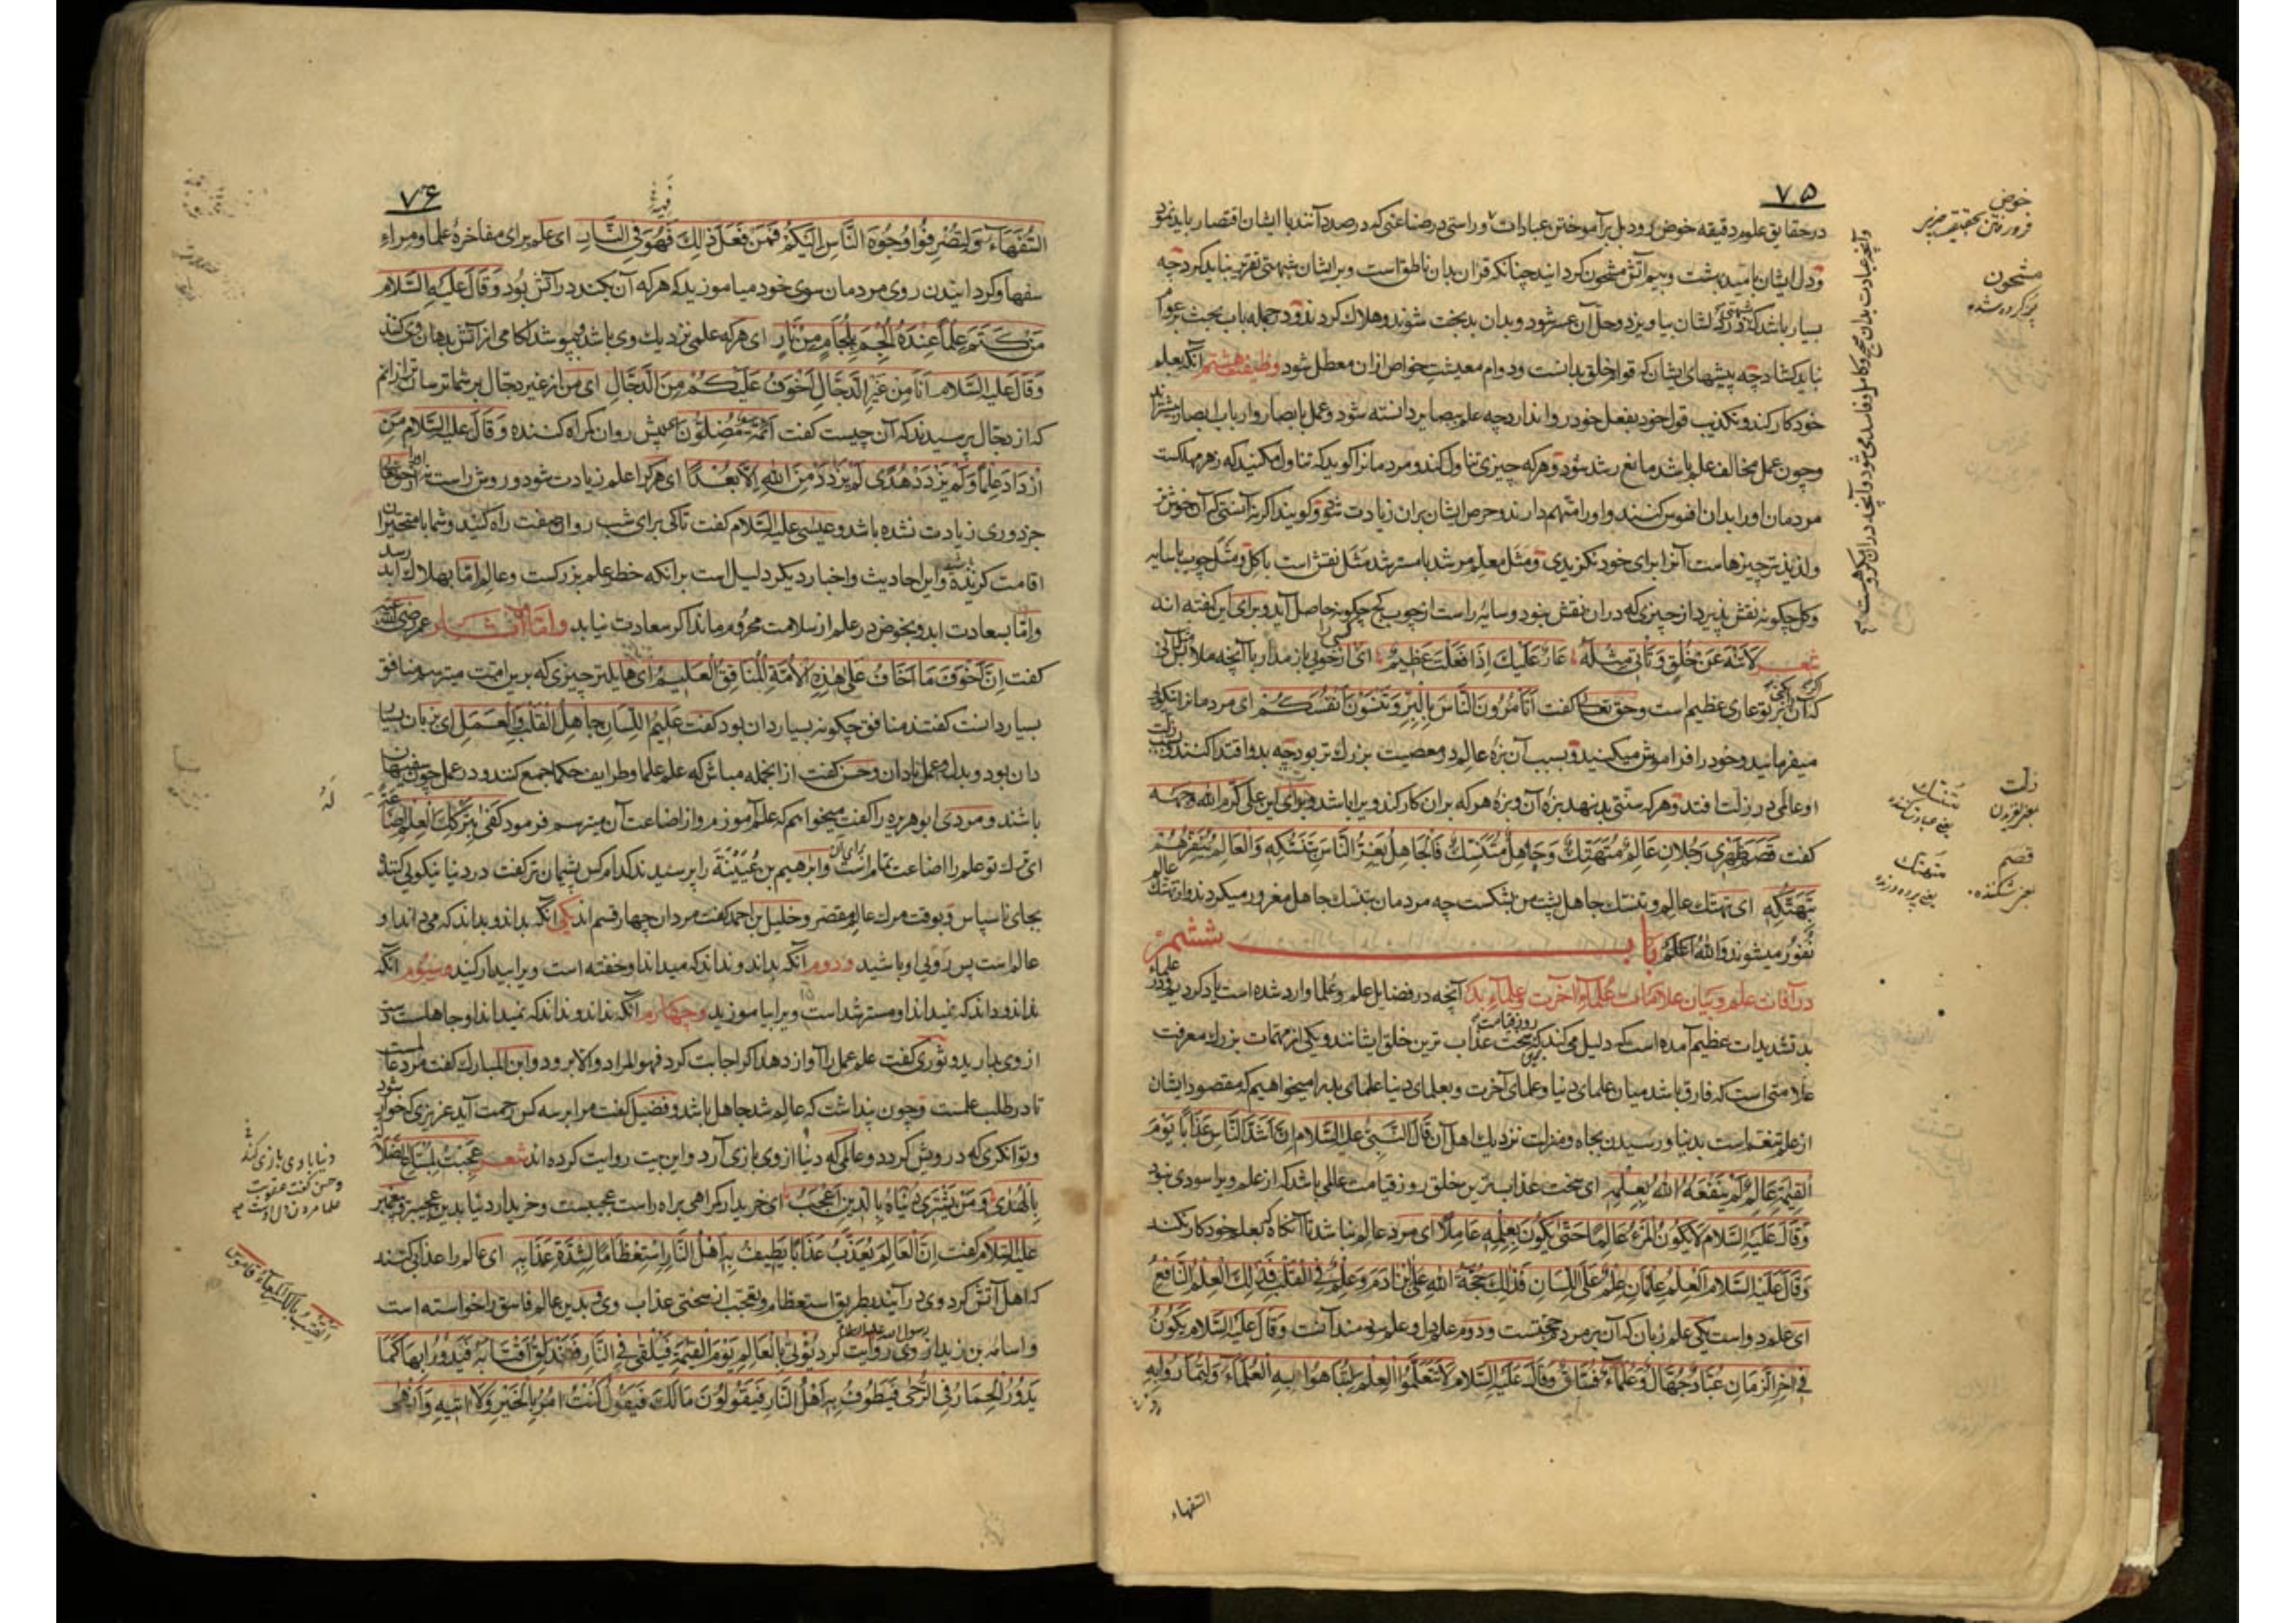 ۷۵
در حقایق علوم دقیقه خوض رود بل بر آموختن عبادات و راستی در صناعتی که در صدد آنند با ایشان اقتصار باید نمود
و دل ایشان بامید بهشت و بیم آتش مشحون گردانید چنانکه قرآن بدان ناطق است و بر ایشان شبهتی تقریر نباید کرد چه
بسیار باشد که شبهتی در دلشان بیاویزد و حل آن عسر شود و بدان بدبخت شوند و هلاک گردند و در جمله باب بحث بر عوام
نباید گشاد چه پیشهای ایشان که قوام خلق بدانست و دوام معیشت خواص ازان معطل شود وظیفه هشتم آنکه بعلم
خود کار کند و تکذیب قول خود بفعل خود روا ندارد چه علم ببصایر دانسته شود و عمل بابصار و ارباب ابصار بیشترند
و چون عمل مخالف علم باشد مانع رشد شود و هر که چیزی تناول کند و مردمانرا گوید که تناول مکنید که زهر مهلکست
مردمان او را بدان افسوس کنند و او را متهم دارند و حرص ایشان بران زیادت شود و گویند اگر نه آنستی که آن خوشتر
و لذیذتر چیزهاست آنرا برای خود نگزیدی و مثل معلم مرشد با مسترشد مثل نقش است با گل و مثل چوب با سایه
و گل چگونه نقش پذیرد از چیزی که دران نقش نبود و سایه راست از چوب کج چگونه حاصل آید و برای این گفته اند
شعر لا تنه عن خلق و تأتی مثله عار علیک اذا فعلت عظیم ای از خویی باز مدار با آنچه ملابس آنی
که آن بر تو عاری عظیم است و حق تعالی گفت أتأمرون الناس بالبر و تنسون أنفسکم ای مردمانرا نیکویی
میفرمانید و خود را فراموش میکنید و بسبب آن بزه عالم در معصیت بزرگ تر بود چه بدو اقتدا کنند و بسبب زلت
او عالمی در زلت افتد و هر که سنتی بد بنهد بزه آن و بزه هر که بران کار کند ویرا باشد و برای این علی کرم الله وجهه
گفت قصم ظهری رجلان عالم متهتک و جاهل متنسک فالجاهل یغر الناس بتنسکه و العالم ینفرهم
بتهتکه ای تهتک عالم و تنسک جاهل پشت من بشکست چه مردمان بتنسک جاهل مغرور میگردند و از تهتک عالم
نفور میشوند والله اعلم باب ششم
در آفات علم و بیان علامات علماء آخرت و علماء بد آنچه در فضایل علم و علما وارد شده است یاد کردیم و در علماء
بد تشدیدات عظیم آمده است که دلیل می کند که سخت عذاب ترین خلق روز قیامت ایشانند و یکی از مهمات بزرگ معرفت
علامتی است که فارق باشد میان علمای دنیا و علمای آخرت و بعلمای دنیا علمای بد را میخواهیم که مقصود ایشان
از علم تنعم است بدنیا و رسیدن بجاه و منزلت نزدیک اهل آن قال النبی علیه السلام ان اشد الناس عذابا یوم
القیمة عالم لم ینفعه الله بعلمه ای سخت عذاب ترین خلق روز قیامت عالمی باشد که از علم ویرا سودی نبود
و قال علیه السلام لا یکون المرء عالما حتی یکون بعلمه عاملا ای مرد عالم نباشد تا آنگاه که بعلم خود کار نکند
و قال علیه السلام العلم علمان علم علی اللسان فذلک حجة الله علی ابن آدم و علم فی القلب فذلک العلم النافع
ای علم دو است یکی علم زبان که آن بر مردم حجتست و دوم علم دل و علم سودمند آنست و قال علیه السلام یکون
فی آخر الزمان عباد جهال و علماء فساق و قال علیه السلام لا تتعلموا العلم لتباهوا به العلماء و لتماروا به
السفهاء
خوض
فرو رفتن بتحقیق چیز
مشحون
پر کرده شده
زلت
بمعنی لغزیدن
متنسک
یعنی عبادت کننده
قصم
بمعنی شکننده
متهتک
یعنی پرده درنده
۷۶
السفهاء و لتصرفوا وجوه الناس الیکم فمن فعل ذلک فهو فی النار ای علم برای مفاخرهٔ علما و مراء
سفها و گردانیدن روی مردمان سوی خود میاموزید که هر که آن بکند در آتش بود و قال علیه السلام
من کتم علما عنده الجم بلجام من نار ای هر که علمی نزدیک وی باشد بپوشد لگامی از آتش بدهان وی کنند
و قال علیه السلام أنا من غیر الدجال أخوف علیکم من الدجال ای من از غیر دجال بر شما ترسان ترم
که از دجال پرسیدند که آن چیست گفت ائمة مضلون پیش روان گمراه کننده و قال علیه السلام من
ازداد علما و لم یزدد هدی لم یزدد من الله الا بعدا ای هر کرا علم زیادت شود و روش راست نه او را از حق تعالی
جز دوری زیادت نشده باشد و عیسی علیه السلام گفت تا کی برای شب روان صفت راه کنید و شما با متحیران
اقامت کرده و این احادیث و اخبار دیگر دلیل است برانکه خطر علم بزرگست و عالم اما بهلاک ابد رسد
و اما بسعادت ابد و بخوض در علم از سلامت محروم ماند اگر سعادت نیابد و اما آثار عمر رضی الله عنه
گفت ان اخوف ما اخاف علی هذه الامة المنافق العلیم ای هایلتر چیزی که برین امت میترسم منافق
بسیار دانست گفتند منافق چگونه بسیار دان بود گفت علیم اللسان جاهل القلب و العمل ای بزبان بسیار
دان بود و بدل و عمل نادان و حسن گفت ازانجمله مباش که علم علما و طرایف حکما جمع کنند و در عمل چون سفیهان
باشند و مردی ابو هریره را گفت میخواهم که علم آموزم و از اضاعت آن میترسم فرمود کفی بترکک العلم اضاعة
ای ترک تو علم را اضاعت تمام است و ابراهیم بن عیینة را پرسیدند کدام کس پشیمان تر گفت در دنیا نیکویی کننده
بجای ناسپاس و بوقت مرگ عالم مقصر و خلیل بن احمد گفت مردان چهار قسم اند یکی آنکه بداند و بداند که می داند او
عالم است پس روی او باشید و دوم آنکه بداند و نداند که میداند او خفته است ویرا بیدار کنید و سیوم آنکه
نداند و داند که نمیداند او مسترشد است ویرا بیاموزید و چهارم آنکه نداند و نداند که نمیداند او جاهلست
از وی بپرهیزید و ثوری گفت علم عمل را آواز دهد اگر اجابت کرد فهو المراد و الا برود و ابن المبارک گفت مرد عالمست
تا در طلب علمست و چون پنداشت که عالم شد جاهل باشد و فضیل گفت مرا بر سه کس رحمت آید عزیزی که خوار شود
و توانگری که درویش گردد و عالمی که دنیا از وی بازی آرد و این بیت روایت کرده اند شعر عجبت لمبتاع الضلالة
بالهدی و من یشتری دنیاه بالدین اعجب ای خریدار گمراهی براه راست عجبست و خریدار دنیا بدین عجیبتر و پیغمبر
علیه السلام گفت ان العالم یعذب عذابا یطیف به اهل النار استعظاما لشدة عذابه ای عالم را عذابی کنند
که اهل آتش گرد وی در آیند بطریق استعظام و تعجب از سختی عذاب وی و بدین عالم فاسق را خواسته است
و اسامه بن زید از رسول الله علیه السلام روایت کرد یؤتی بالعالم یوم القیمة فیلقی فی النار فتندلق اقتابه فیدور بها کما
یدور الحمار فی الرحی فیطوف به اهل النار فیقولون مالک فیقول کنت آمر بالخیر و لا آتیه و أنهی
دنیا با وی بازی کند
و حسن گفت عقوبت
علما مردن دل اوست